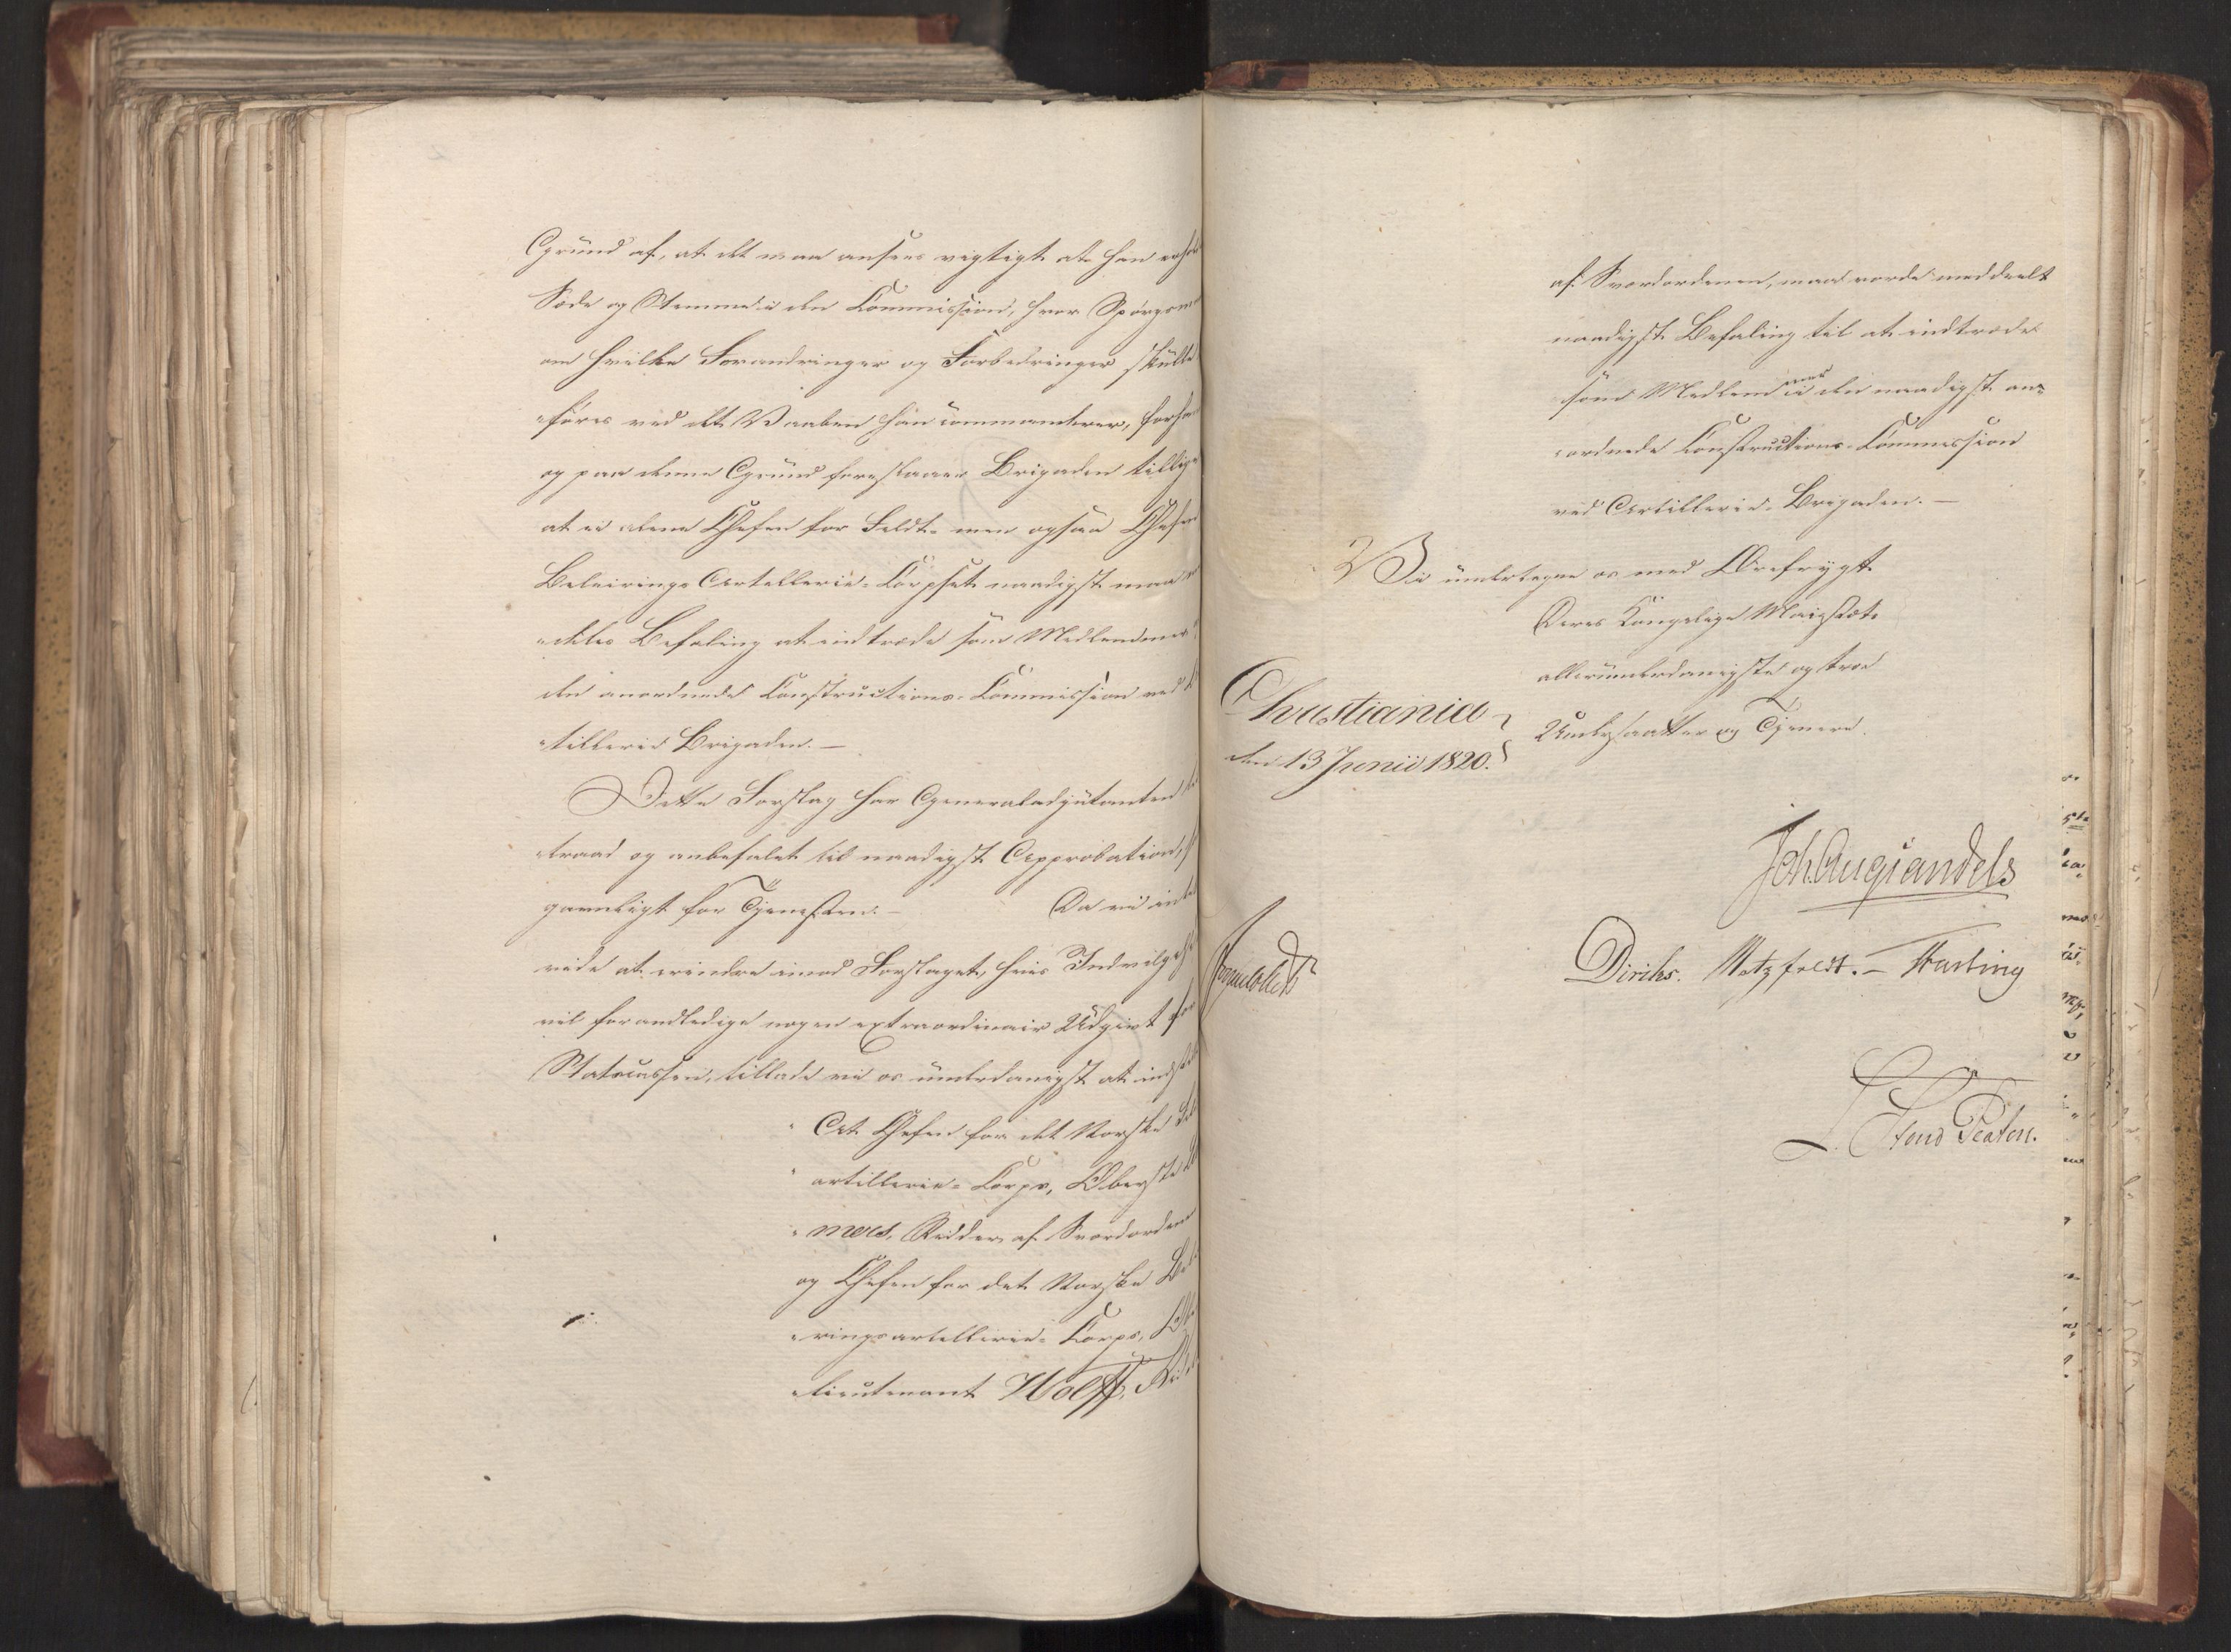 Grund af, at det maa ansees vigtigt at han erhol
Sæde og Stemme i den Commission, hvor Spørgsm
om hvilke Forandringer og Forbedringer skulle
føres ved det Vaaben han commanderer, forha
og paa denne Grund foreslaaer Brigaden tillige
at ei alene Chefen for Feldt- men ogsaa Chefen
Beleirings Artellerie-Corpset naadigst maa
deeles Befaling at indtræde som Medlemmer i
den anordnede Constructions-Commission ved
tillerie Brigaden. —
Dette Forslag har Generaladjutanten
traad og anbefalet til naadigst Approbation,
gavnligt for Tjenesten. — Da vi intet
vide at erindre imod Forslaget, hvis Indvilge
vil forandledige nogen extraordinair Udgivt for
Statscassen, tillade vi os underdanigst at indst
At Chefen for det Norske
artillerie-Corps, Oberste
mers, Ridder af Sværdordenen
og Chefen for det Norske Bel
ringsartellerie-Corps,
lieutenant Wolff, Rid
af Sværdordenen, maa vorde meddeelt
naadigst Befaling til at indtræde
som Medlemmer i den naadigst an-
ordnede Constructions-Commission
ved Artillerie-Brigaden. —
Vi undertegne os med Ærefrygt
Deres Kongelige Maiestæts
allerunderdanigste og troe
Undersaatter og Tjenere.
Christiania
den 13 Junii 1820.
Joh. Aug Sandels
Diriks. Motzfeldt. — Fasting